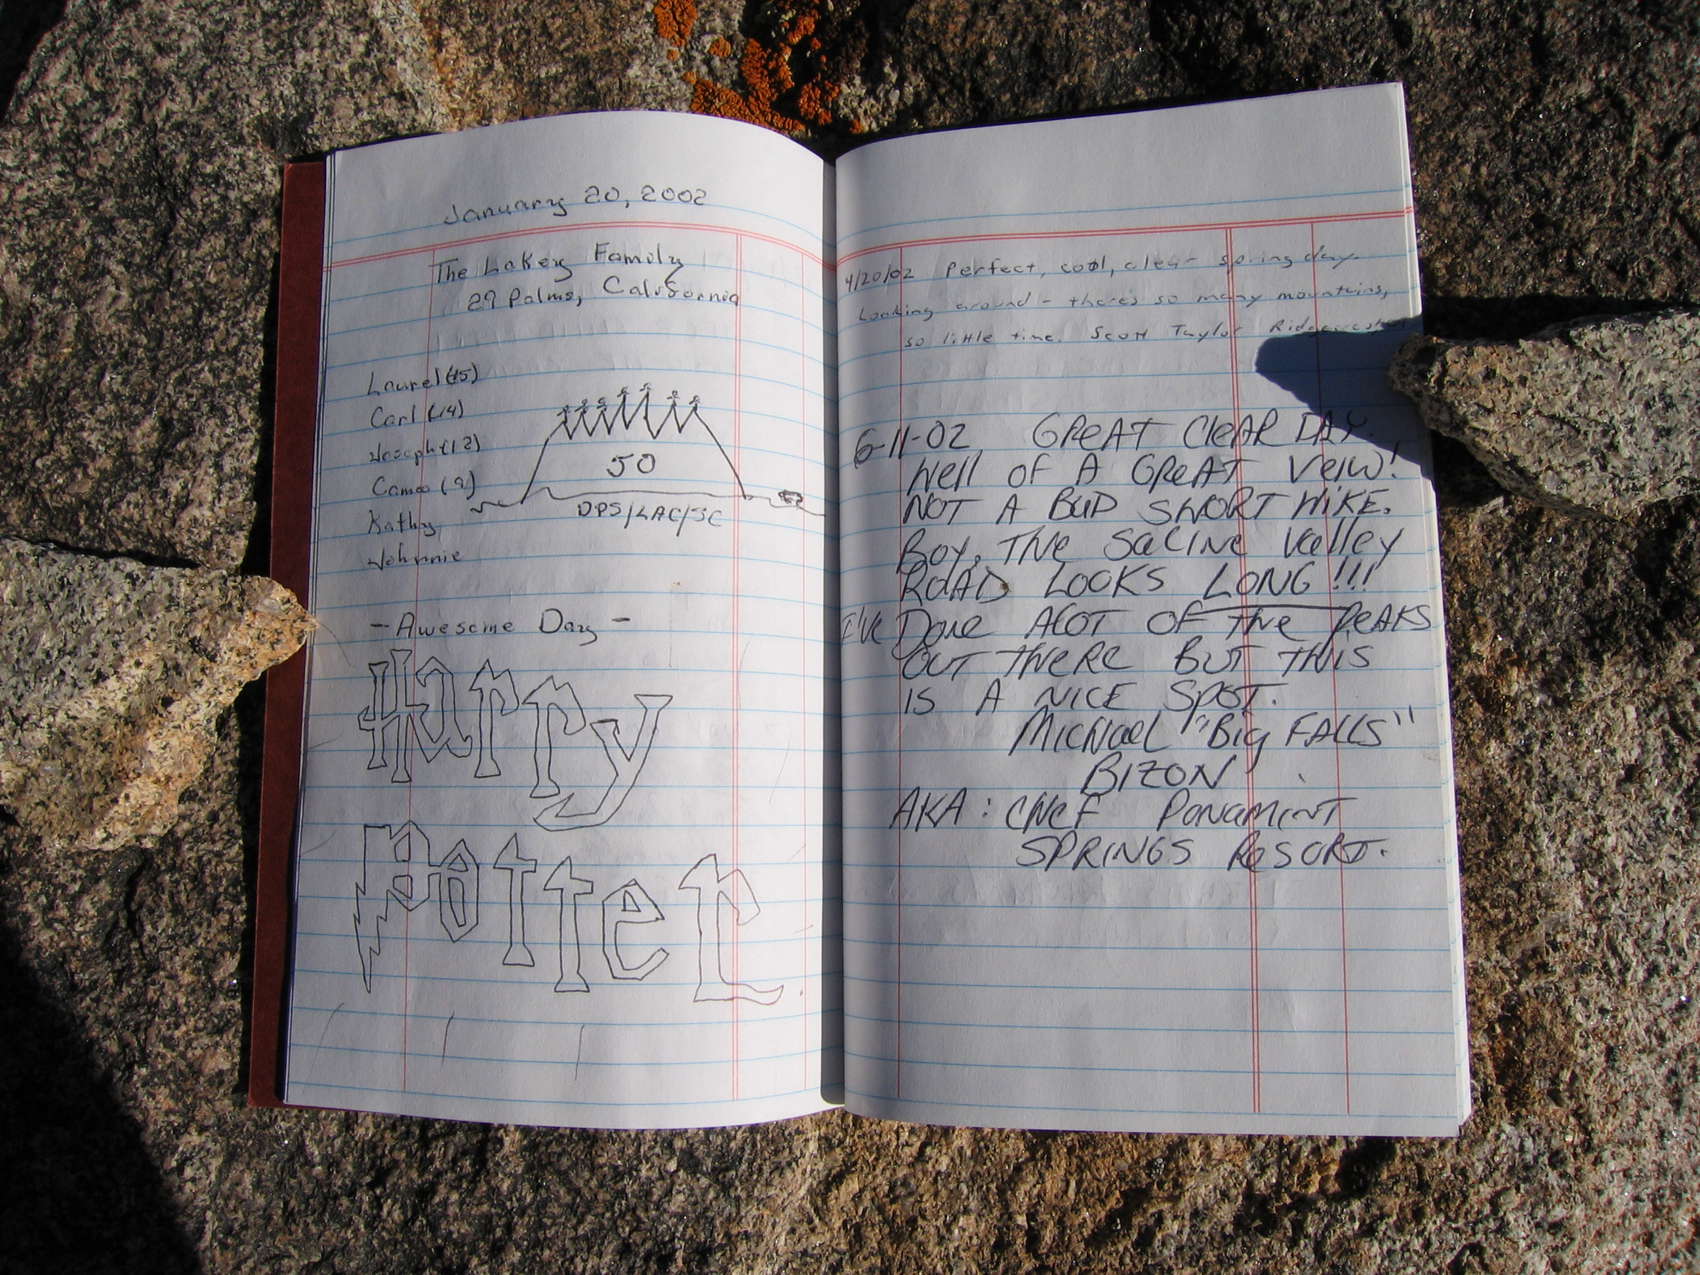 January 20, 2002
The Lakey Family
29 Palms, California
Laurel (15)
Carl (14)
Joseph (12)
Cameo (9)
Kathy
Johnnie
50
DPS/LAC/SC
- Awesome Day -
Harry
Potter
4/20/02 Perfect, cool, clear spring day.
Looking around - there's so many mountains,
so little time. Scott Taylor Ridgecrest
6-11-02 GREAT CLEAR DAY.
Hell of A GREAT VEIW!
NOT A BUD SHORT HIKE.
BOY, THE SALINE Valley
ROAD LOOKS LONG!!!
I've Done ALOT OF THE PEAKS
OUT THERE BUT THIS
IS A NICE SPOT.
MICHAEL "BIG FALLS"
BIZON
AKA: CHEF PANAMINT
SPRINGS RESORT.